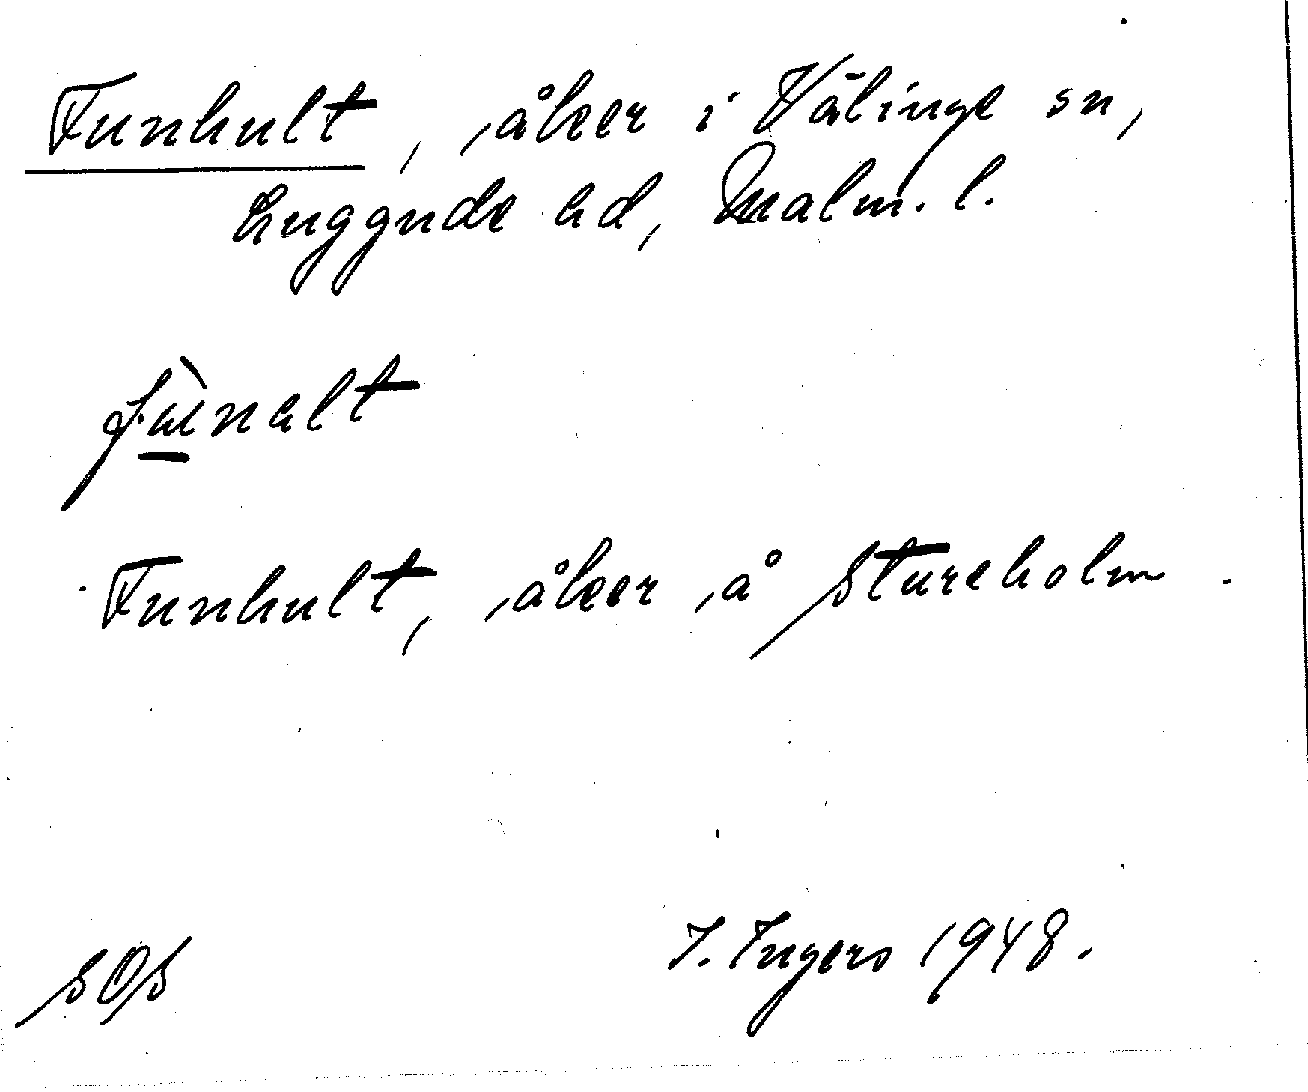 Funhult, åker i Välinge sn,
Luggude hd, Malm. l.
fùnalt
Funhult, åker å Stureholm.
I. Ingers 1948.
SOS